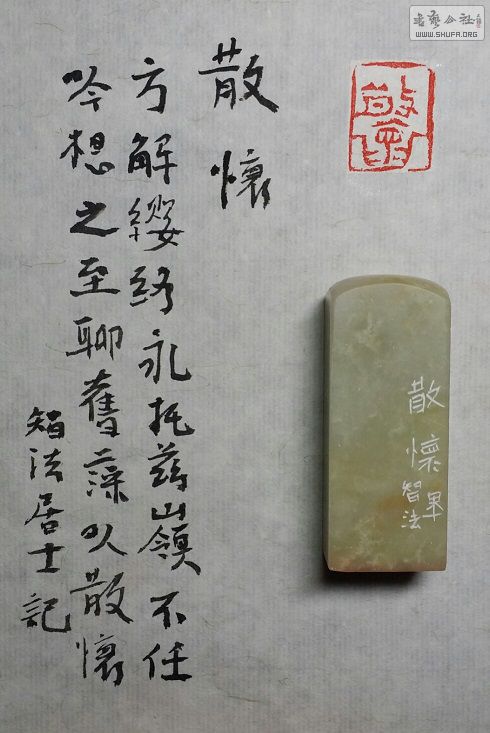 書藝公社
WWW.SHUFA.ORG
散懷
散懷
方解纓絡永托茲嶺不任
吟想之至聊奮藻以散懷
智法居士記
散懷
智法